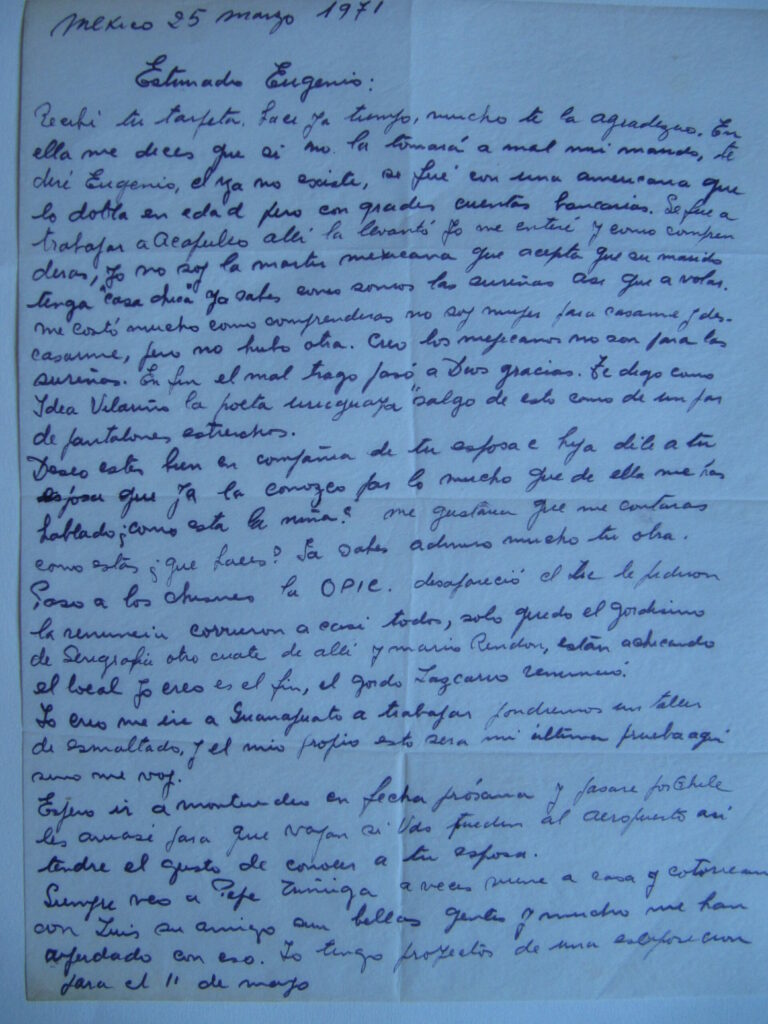 Mexico 25 marzo 1971
Estimado Eugenio:
Recibi tu tarjeta. hace ya tiempo, mucho te la agradezco. En
ella me dices que si no la tomará a mal mi marido, te
diré Eugenio, el ya no existe, se fué con una americana que
lo dobla en edad pero con grades cuentas bancarias. Se fue a
trabajar a Acapulco allí la levantó yo me enteré y como compren
deras, yo no soy la martir mexicana que acepta que su marido
tenga "casa chica" ya sabes como somos las sureñas asi que a volar.
me costó mucho como comprenderas no soy mujer para casarme y des-
casarme, pero no hubo otra. Creo los mejicanos no son para las
sureñas. En fin el mal trago pasó a Dios gracias. Te digo como
Idea Vilariño la poeta uruguaya "salgo de esto como de un par
de pantalones estrechos.
Deseo estes bien en compañia de tu esposa e hija dile a tu
esposa que ya la conozco por lo mucho que de ella me has
hablado ¿como esta la niña? me gustaria que me contaras
como estás ¿que haces? Ya sabes admiro mucho tu obra.
Paso a los chismes la OPIC. desapareció el le pidieron
la renuncia corrieron a casi todos, solo quedo el gordisimo
de Serigrafia otro cuate de alli y mario Rendon, están achicando
el local yo creo es el fin, el gordo Lazcarro renunció.
Yo creo me ire a Guanajuato a trabajar pondremos un taller
de esmaltado, y el mio propio esto sera mi última prueba aqui
sino me voy.
Espero ir a montevideo en fecha prósima y pasare por Chile
les avisasé para que vayan si Uds pueden al aeropuerto asi
tendre el gusto de conocer a tu esposa.
Siempre veo a Pepe Zuñiga a veces viene a casa y cotorrean
con Luis su amigo son bellas gentes y mucho me han
ayudado con eso. Yo tengo proyectos de una esposicion
para el 11 de mayo